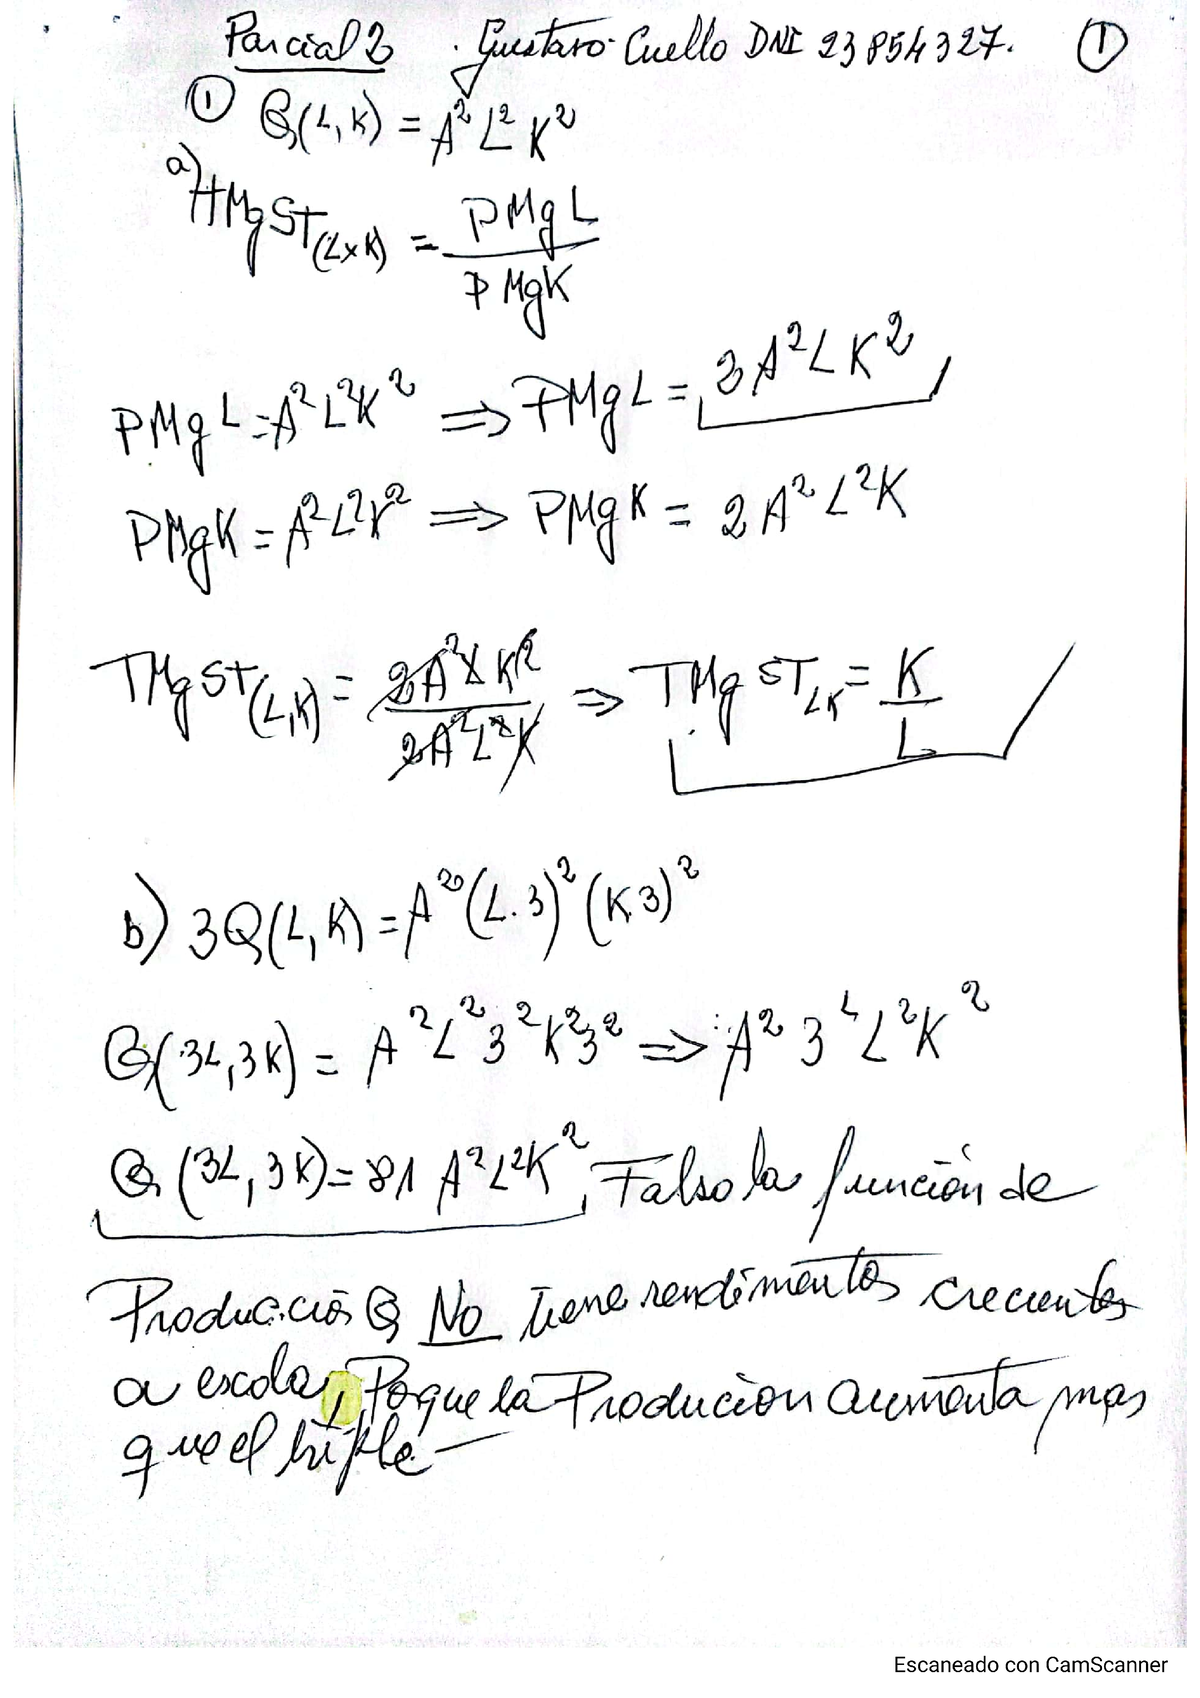 Parcial 2 . Gustavo Cuello DNI 23854327. ①
① Q(L,K) = A² L² K²
a) TMgST(LxK) = PMgL / PMgK
PMgL = A²L²K² ⇒ PMgL = 2A²LK²
PMgK = A²L²K² ⇒ PMgK = 2A²L²K
TMgST(L,K) = 2A²LK² / 2A²L²K ⇒ TMgST LK = K / L
b) 3Q(L,K) = A²(L.3)² (K.3)²
Q(3L,3K) = A²L²3²K²3² ⇒ A² 3⁴ L²K²
Q(3L,3K) = 81 A²L²K², Falso la función de
Producció Q No tiene rendimientos crecientes
a escala, Poque la Produción aumenta mas
que el triple
Escaneado con CamScanner